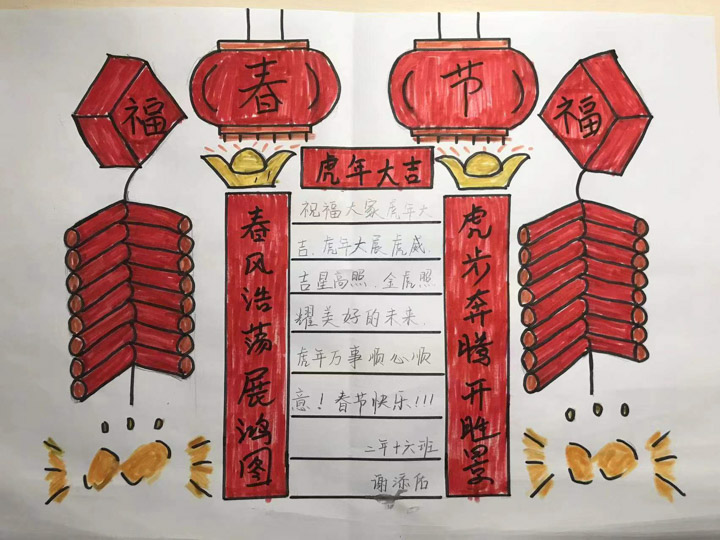 春 节
福
福
虎年大吉
虎步奔腾开胜景
春风浩荡展鸿图
祝福大家虎年大
吉、虎年大展虎威、
吉星高照、金虎照
耀美好的未来、
虎年万事顺心顺
意！春节快乐!!!
二年十六班
谢添